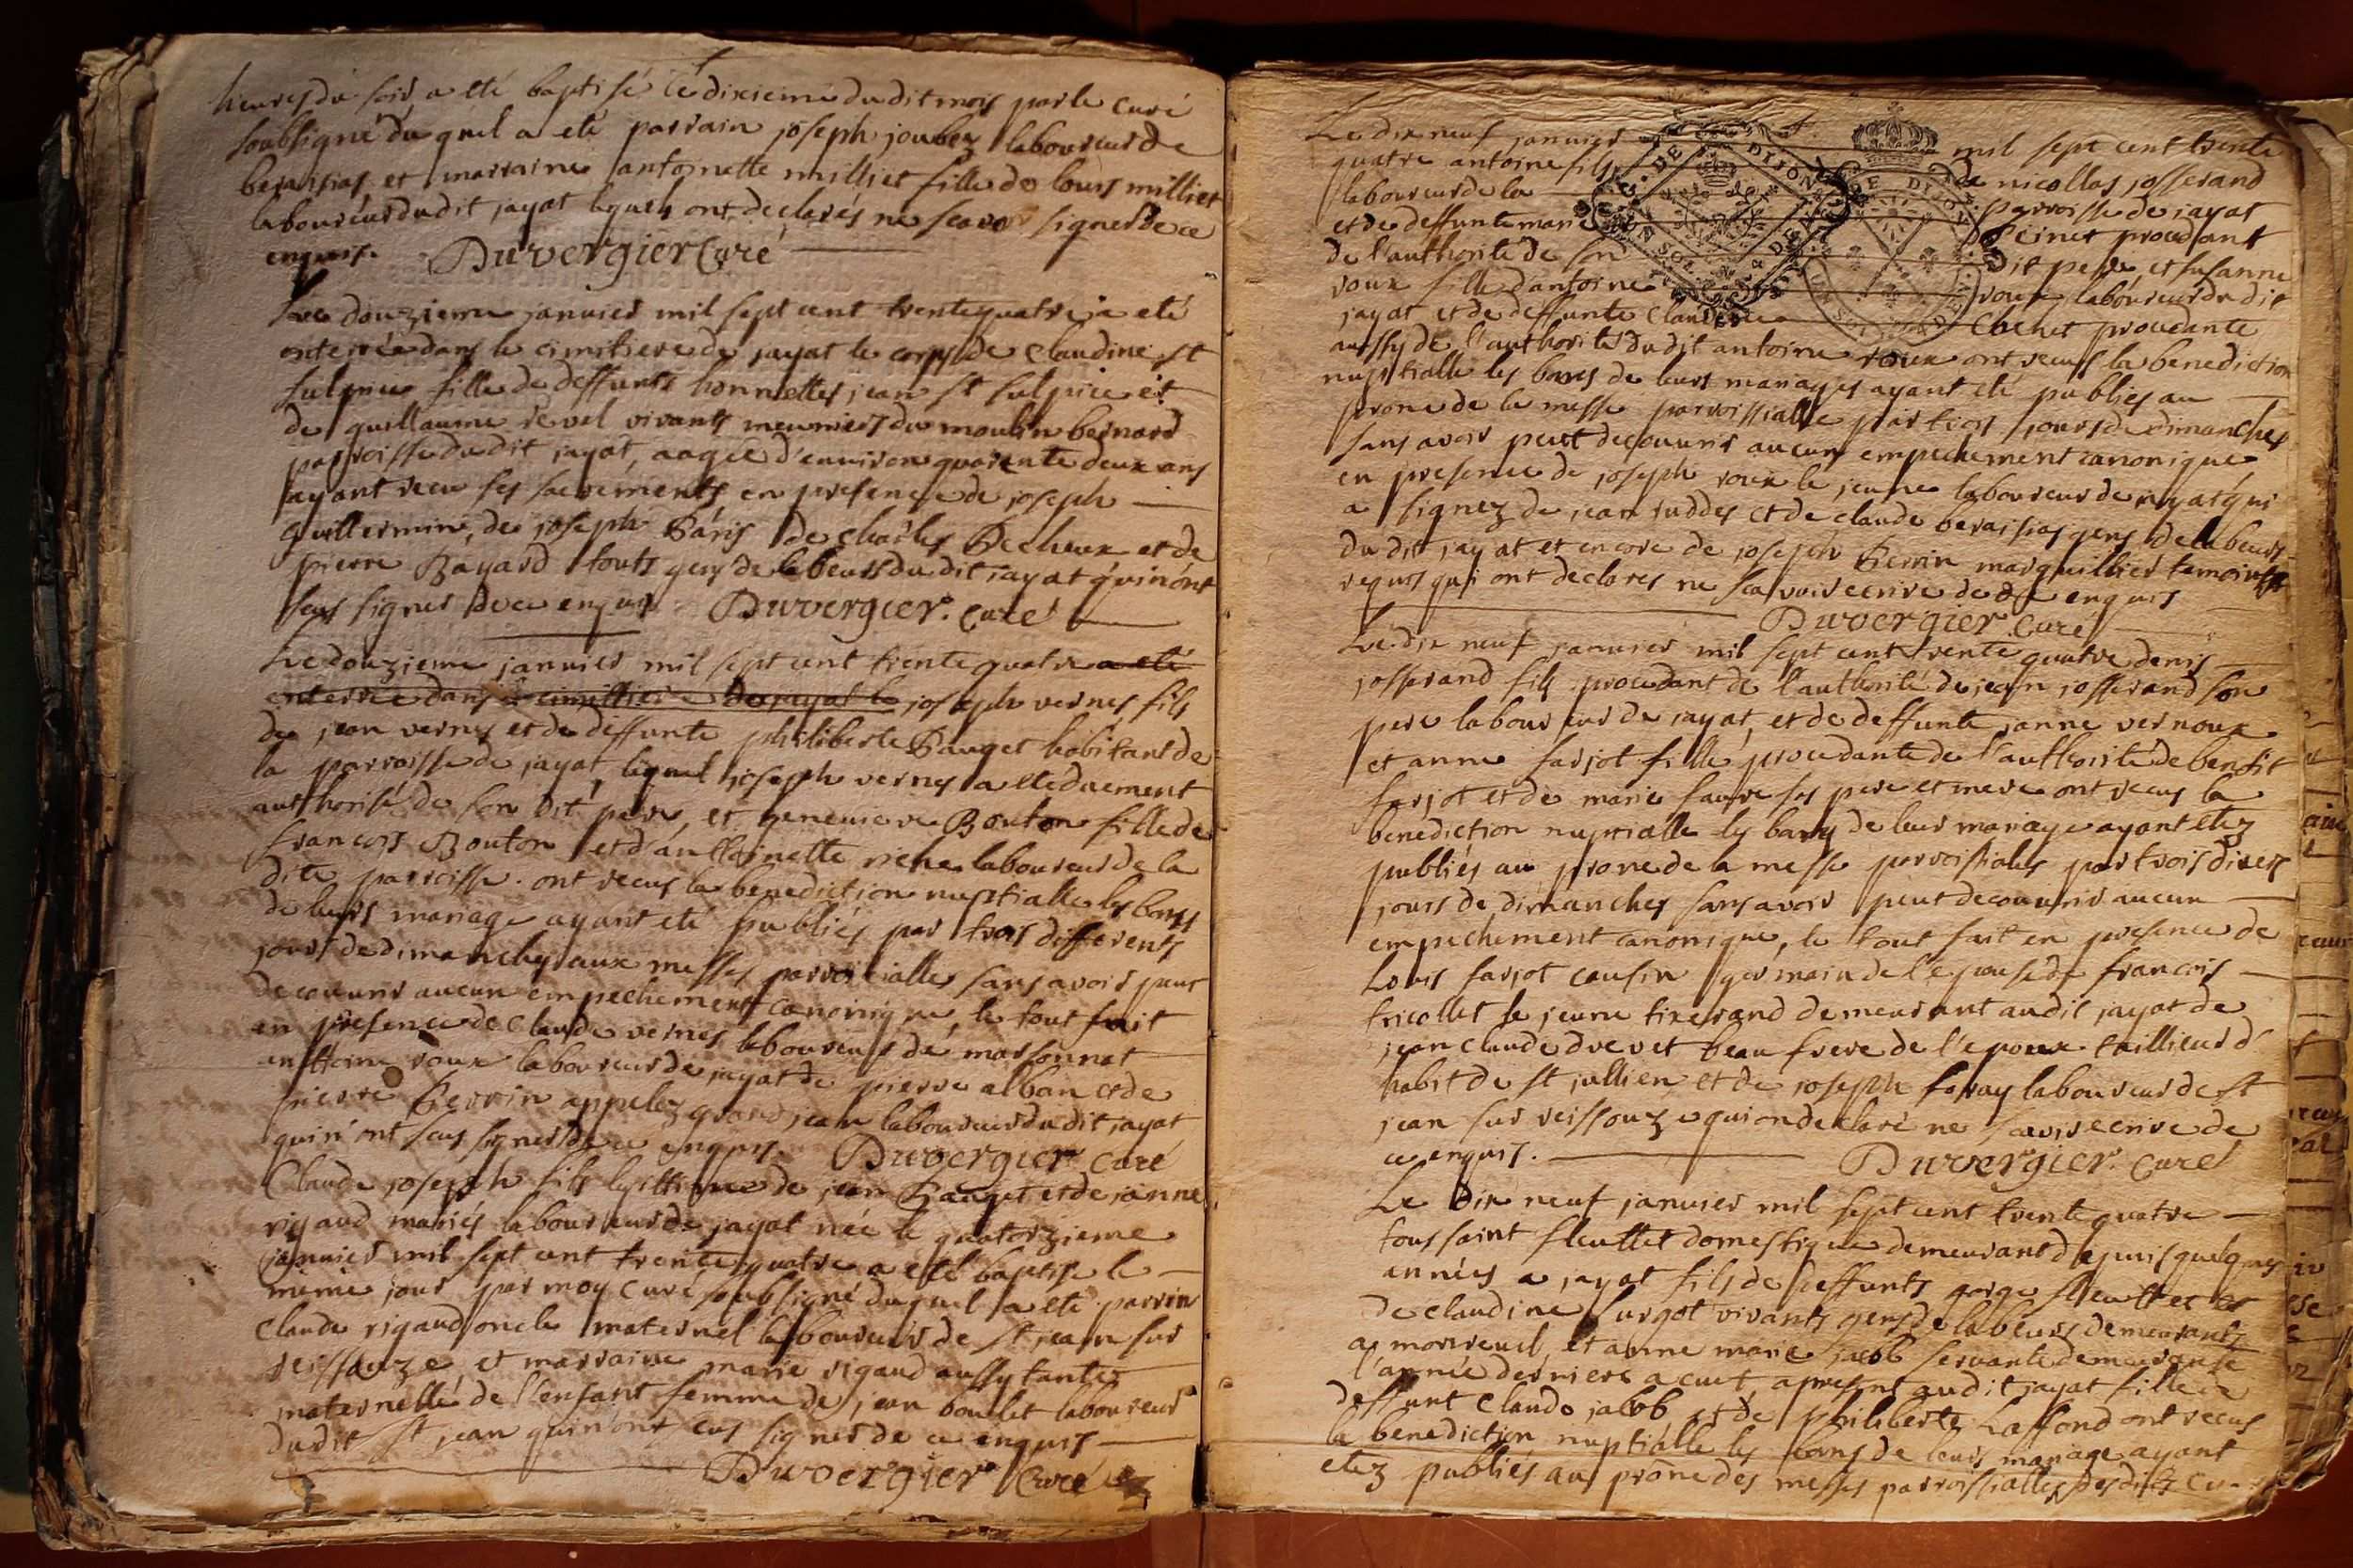 heures du soir a eté baptisé le dixieme du dit mois par le curé
soubsigné du quel a eté parrain joseph joubez laboureur de
beraisias et marraine antoinette milliet fille de louis milliet
laboureur du dit jayat lequels ont declarés ne scavoir signer de ce
enquis. Duvergier Curé
Le douzieme janvier mil sept cent trente quatre a eté
enterrée dans le cimitiere de jayat le corps de Claudine st
sulpice fille de deffunts honnettes jean st sulpice et
de guillaume revel vivants meuniers du moulin bernard
parroisse du dit jayat, aagée d'environ quarente deux ans
ayant receu ses sacrements en presence de joseph
guillermin, de joseph Páris de Charles Pecheux et de
pierre Bayard touts gens de labeurs du dit jayat qui n'ont
sceus signer de ce enquis Duvergier. Curé
Le douzieme janvier mil sept cent trente quatre a eté
enterrée dans le cimittiere de jayat le joseph vernes fils
de jean vernes et de deffunte philiberte Pauget habitant de
la parroisse de jayat, lequel joseph vernes a eté duement
authorisé de son dit pere, et genevieve Bouton fille de
francois Bouton et d'anthoinette riche laboureur de la
dite parroisse. ont receus la benediction nuptialle les bans
de leurs mariage ayant eté publiés par trois differents
jours de dimanches aux messes parroicialles sans avoir peut
decouvrir aucun empechement canonique, le tout fait
en presence de Claude vernes laboureur de marsonnat
anthoine roux laboureur de jayat de pierre alban et de
pierre Perrin appelez grand jean laboureur du dit jayat
qui n'ont sceus signer de ce enquis. Duvergier Curé
Claude joseph fils legittime de jean Pauget et de janne
rigaud mariés laboureur de jayat née le quatorzieme
janvier mil sept cent trente quatre a eté baptisé le
meme jour par moy Curé soubsigné duquel a eté parrin
Claude rigaud oncle maternel laboureur de st jean sur
reissouze, et marraine marie rigaud aussy tante
maternelle de l'enfant femme de jean boullet laboureur
du dit st jean qui n'ont sceus signer de ce enquis
Duvergier Curé
Le dix neuf janvier mil sept cent trente
quatre antoine fils de nicollas josserand
laboureur de la parroisse de jayat
et de deffunte marie Peinet procedant
de l'authorité de son dit pere et susanne
roux fille d'antoine roux laboureur du dit
jayat et de deffunte Claudine Chenet procedante
aussy de l'authorité du dit antoine roux ont receus la benediction
nuptialle les bans de leurs mariages ayant eté publiés au
prone de la messe parroissialle par trois jours de dimanches
sans avoir peut decouvrir aucun empechement canonique
en presence de joseph roux le jeune laboureur de jayat qui
a signez de jean suddes et de claude beraisias gens de labeurs
du dit jayat et encore de joseph Perrin marguillier temoins
requis qui ont declarés ne scavoir ecrire de ce enquis
Duvergier Curé
Le dix neuf janvier mil sept cent trente quatre denis
josserand fils procedant de l'authorité de jean josserand son
pere laboureur de jayat, et de deffunte janne vernoux
et anne farjot fille procedante de l'authorité de benoit
farjot et de marie faure ses pere et mere ont receus la
benediction nuptialle les bans de leur mariage ayant etez
publiés au prone de la messe parroissiales par trois divers
jours de dimanches sans avoir peut decouvrir aucun
empechement canonique, le tout fait en presence de
Louis farjot cousin germain de l'epouse de francois
tricollet le jeune tixerand demeurant audit jayat de
jean claude drevet beau frere de l'epoux taillieur d'
habit de st jullien et de joseph favay laboureur de st
jean sur reissouze qui on declaré ne scavoir ecrire de
ce enquis. Duvergier. Curé
Le dix neuf janvier mil sept cent trente quatre
toussaint fleuttet domestique demeurant depuis quelques
années a jayat fils de deffunts gorge fleuttet et
de claudine surgot vivants gens de labeurs demeurants
a monreuil, et anne marie jacob servante demeurante
l'année derniere a cuet, a present audit jayat fille de
deffunt Claude jacob et de philiberte Laffond ont receus
la benediction nuptialle les bans de leurs mariage ayant
etez publiés au prône des messes parroissialles desdits cu-